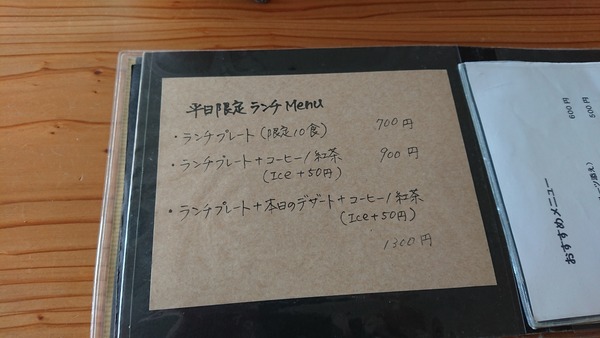 平日限定 ランチ Menu
・ランチプレート(限定10食) 700円
・ランチプレート+コーヒー/紅茶 900円
(Ice+50円)
・ランチプレート+本日のデザート+コーヒー/紅茶
(Ice+50円)
1300円
おすすめメニュー
600円
500円